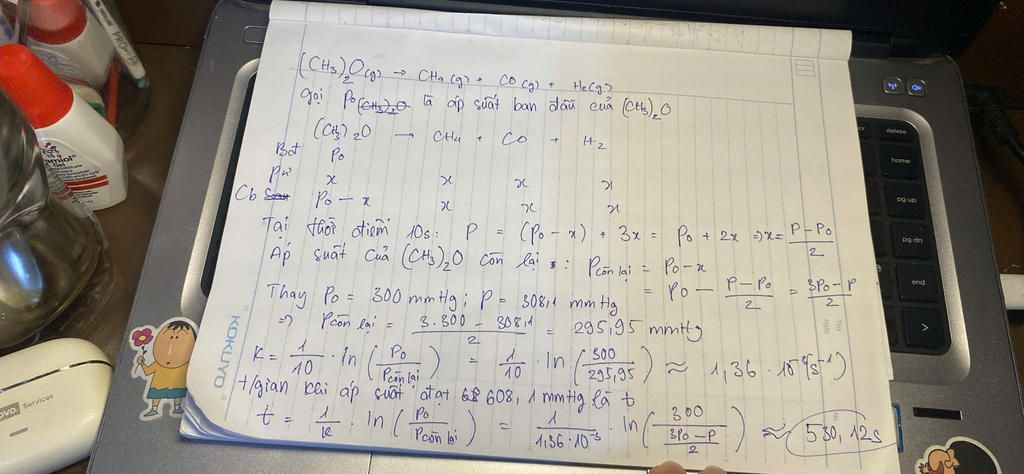 (CH3)2O(g) → CH4(g) + CO(g) + H2(g)
gọi P0 là áp suất ban đầu của (CH3)2O
(CH3)2O → CH4 + CO + H2
Bđ P0
Pứ x x x x
Cb P0 - x x x x
Tại thời điểm 10s: P = (P0 - x) + 3x = P0 + 2x ⇒ x = (P - P0)/2
Áp suất của (CH3)2O còn lại : Pcòn lại = P0 - x
= P0 - (P - P0)/2 = (3P0 - P)/2
Thay P0 = 300 mmHg ; P = 308,1 mmHg
⇒ Pcòn lại = (3.300 - 308,1)/2 = 295,95 mmHg
K = 1/10 . ln (P0/Pcòn lại) = 1/10 . ln (300/295,95) ≈ 1,36 . 10 (s-1)
t/gian khi áp suất đạt 608,1 mmHg là t
t = 1/k . ln (P0/Pcòn lại) = 1/(1,36.10-3) . ln (300/((3P0 - P)/2)) ≈ 530,12s
KOKUYO
delete
home
pg up
pg dn
end
Gel
Services